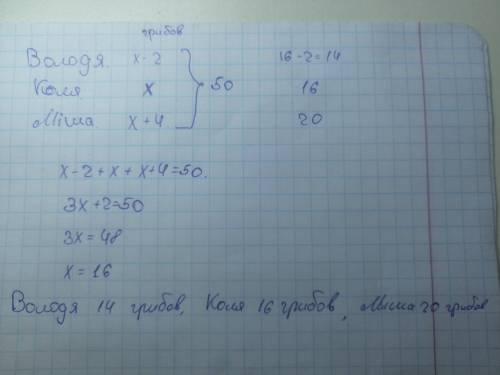 грибов
Володя x-2 16-2=14
Коля x 50 16
Миша x+4 20
x-2+x+x+4=50.
3x+2=50
3x=48
x=16
Володя 14 грибов, Коля 16 грибов, Миша 20 грибов